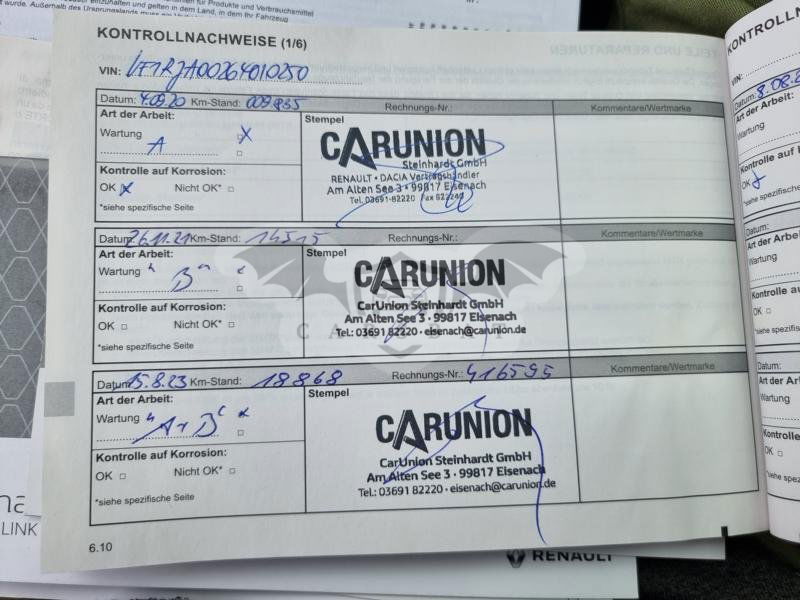 für Produkte und Verbrauchsmittel
einzuhalten und gelten in dem Land, in dem Ihr Fahrzeug
wurde. Außerhalb des Ursprungslands
KONTROLLNACHWEISE (1/6)
VIN: VF1RJA00264010250
Datum: 4.09.20 Km-Stand: 009835 Rechnungs-Nr.: Kommentare/Wertmarke
Art der Arbeit:
Wartung A X
Kontrolle auf Korrosion:
OK X Nicht OK*
*siehe spezifische Seite
Stempel
CARUNION
Steinhardt GmbH
RENAULT • DACIA Vertragshändler
Am Alten See 3 • 99817 Eisenach
Tel. 03691-82220 Fax 822240
Datum: 26.11.21 Km-Stand: 14515 Rechnungs-Nr.: Kommentare/Wertmarke
Art der Arbeit:
Wartung "B"
Kontrolle auf Korrosion:
OK Nicht OK*
*siehe spezifische Seite
Stempel
CARUNION
CarUnion Steinhardt GmbH
Am Alten See 3 • 99817 Eisenach
Tel.: 03691 82220 • eisenach@carunion.de
Datum: 15.8.23 Km-Stand: 18868 Rechnungs-Nr.: 416595 Kommentare/Wertmarke
Art der Arbeit:
Wartung "A+B"
Kontrolle auf Korrosion:
OK Nicht OK*
*siehe spezifische Seite
Stempel
CARUNION
CarUnion Steinhardt GmbH
Am Alten See 3 • 99817 Eisenach
Tel.: 03691 82220 • eisenach@carunion.de
6.10
LINK
RENAULT
KONTROLLN
VIN:
Datum: 8.08.2
Art der Arbeit
Wartung
Kontrolle auf
OK
*siehe spezifische
Datum:
Art der Arbei
Wartung
Kontrolle
OK
*siehe spezifi
Datum:
Art der Art
Wartung
Kontroll
OK
*siehe spe